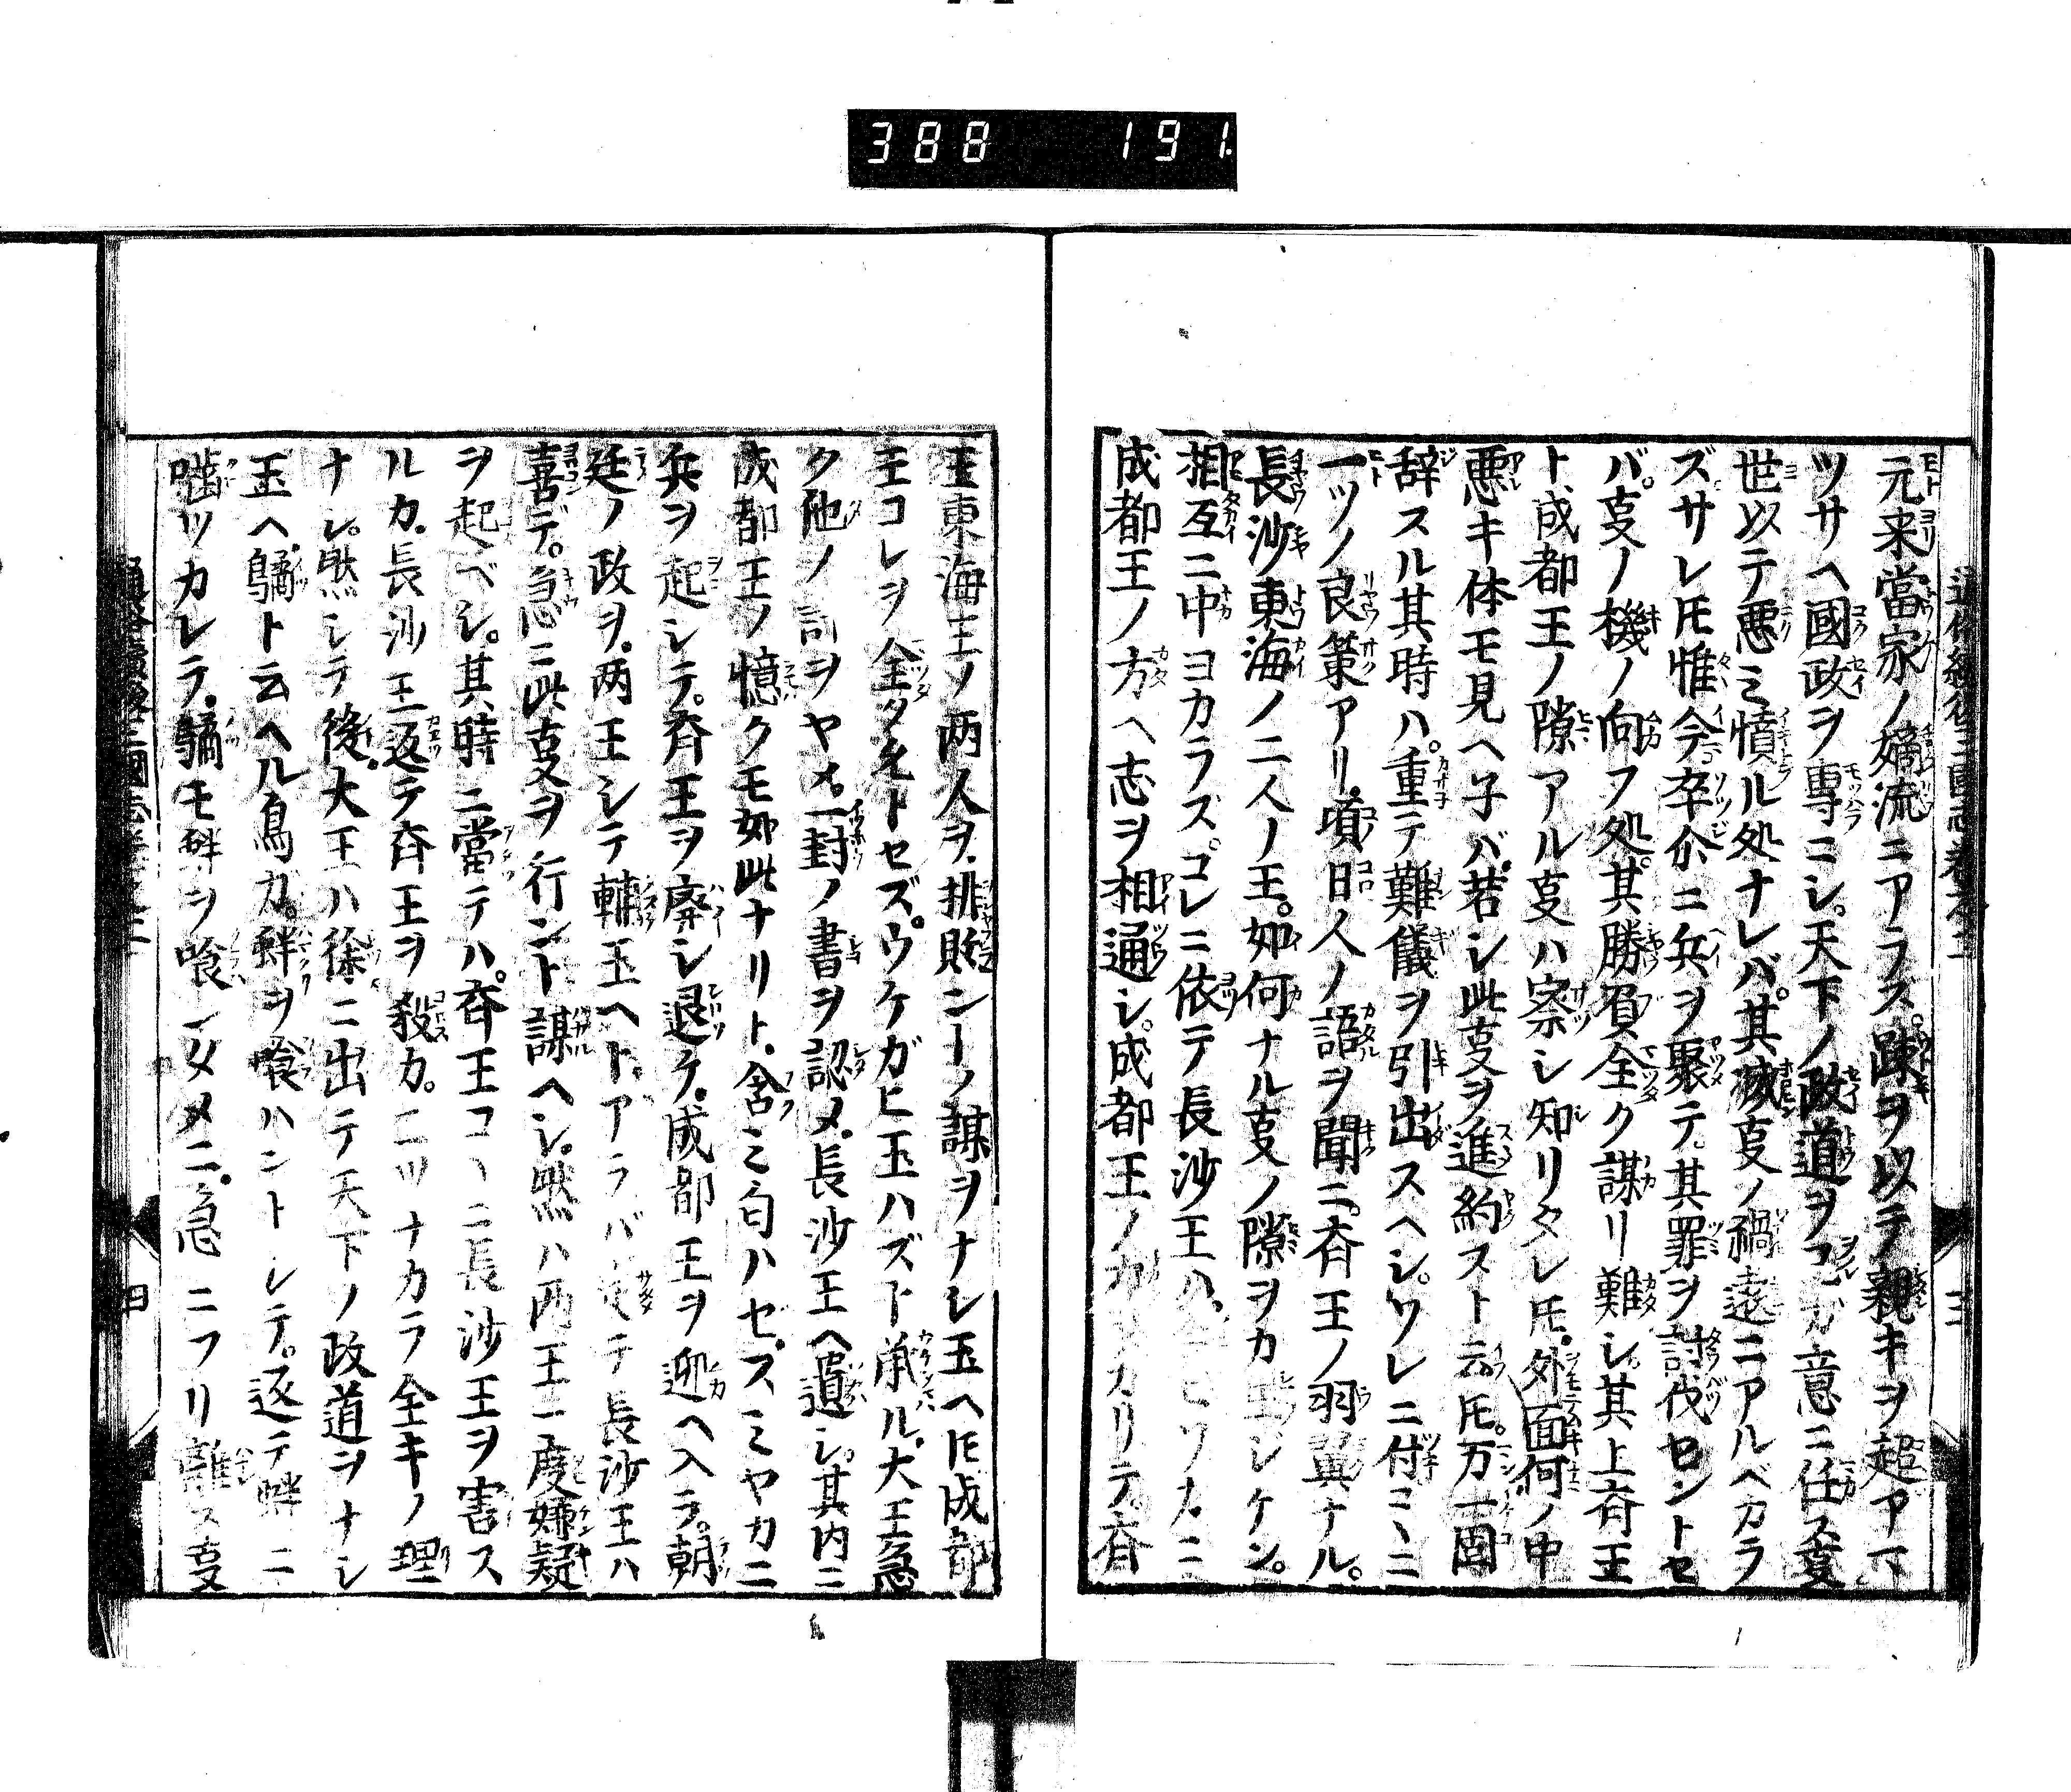 388 191
元来當家ノ嫡流ニアラス。踈ヲ以テ親キヲ超アマ
ツサヘ國政ヲ專ニシ。天下ノ政道ヲコガ意ニ任ス叓
世以テ悪ミ憤ル処ナレバ。其滅叓ノ禍遠ニアルベカラ
ズサレ𪜈惟今卒尒ニ兵ヲ聚テ。其罪ヲ討伐セントセ
バ。叓ノ機ノ向フ処。其勝負全ク謀リ難シ。其上斉王
ト、成都王ノ隙アル叓ハ察シ知リタレ𪜈。外面何ノ中
悪キ体モ見ヘ子バ。若シ此叓ヲ進約スト云𪜈。万一固
辞スル其時ハ。重テ難儀ヲ引出スヘシ。ソレニ付ミヽニ
一ツノ良策アリ。頃日人ノ語ヲ聞ニ。斉王ノ羽翼ナル。
長沙東海ノ二人ノ王。如何ナル叓ノ隙ヲカ生シケン。
相互ニ中ヨカラズ。コレニ依テ長沙王ハ。ヒソカニ
成都王ノ方ヘ志ヲ相通シ。成都王ノカヲカリテ。斉
王東海王ノ両人ヲ。排敗ンーノ謀ヲナシ玉ヘ𪜈成都
王コレヲ全タ先トセズ。ウケガヒ玉ハズト承ル。大王急
ク他ノ討ヲヤメ。一封ノ書ヲ認メ。長沙王ヘ遺シ。其内ニ
成都王ノ憶クモ如此ナリト。含ミ匂ハセ。スミヤカニ
兵ヲ起シテ。斉王ヲ廃シ退ケ。成都王ヲ迎ヘ入ラ。朝
廷ノ政ヲ。両王シテ輔玉ヘト。アラバ定テ長沙王ハ
喜デ。急ニ此叓ヲ行ント謀ヘシ。然ハ両王一度嫌疑
ヲ起ベシ。其時ニ當テハ。斉王コヽニ長沙王ヲ害ス
ルカ。長沙王返テ斉王ヲ殺カ。二ツナカラ全キノ理
ナレ。然シテ後。大王ハ徐ニ出テ天下ノ政道ヲナシ
玉ヘ。鷸ト云ヘル鳥ガ。蚌ヲ喰ハントレテ。返テ蚌ニ
嚙ツカレテ。鷸モ蚌ヲ喰ン女メニ。急ニフリ離ス叓